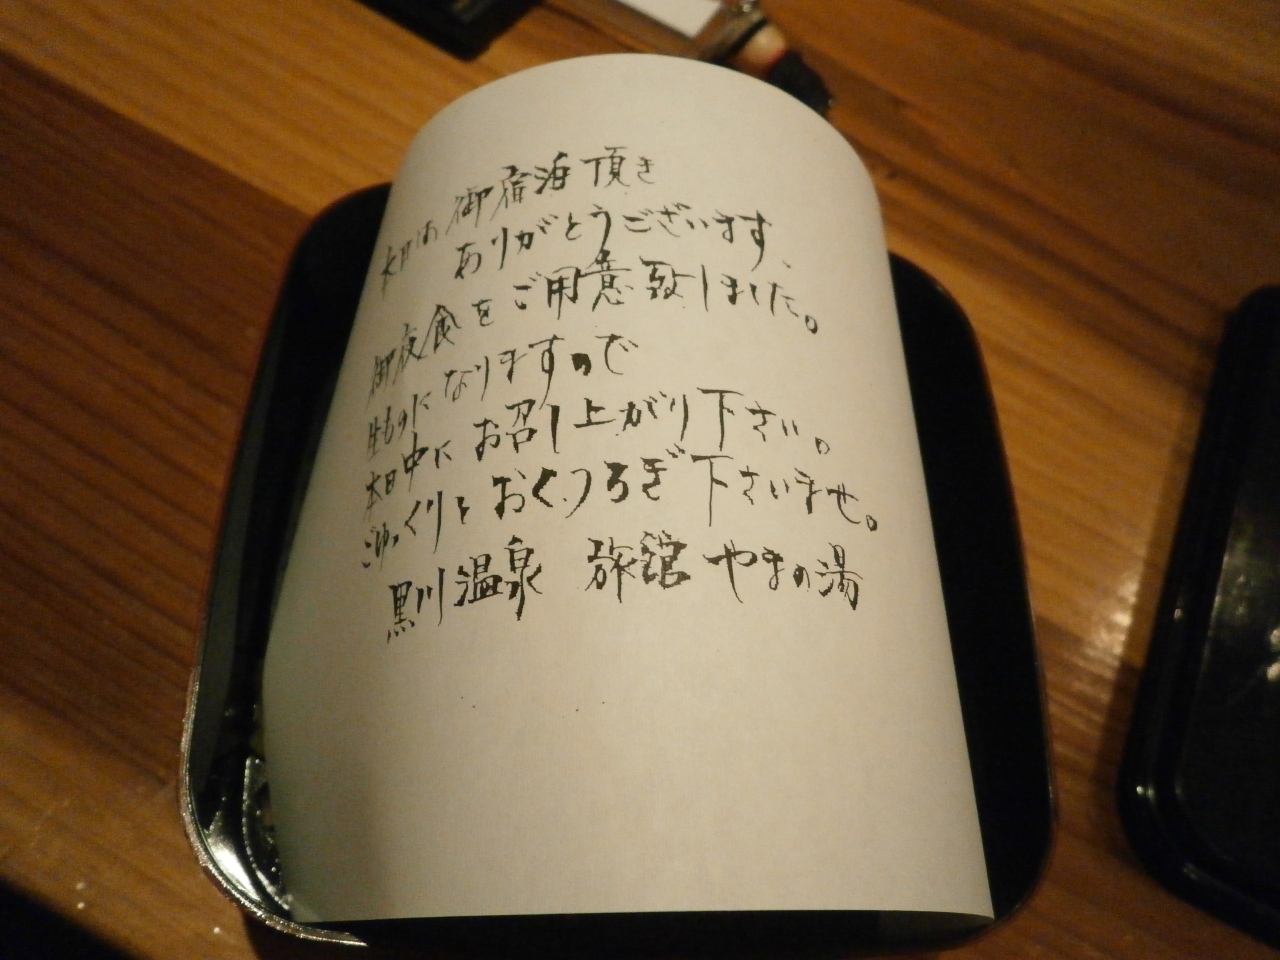 本日は御宿泊頂き
ありがとうございます。
御夜食をご用意致しました。
生ものになりますので
本日中にお召し上がり下さい。
ごゆっくりとおくつろぎ下さいませ。
黒川温泉 旅館 やまの湯